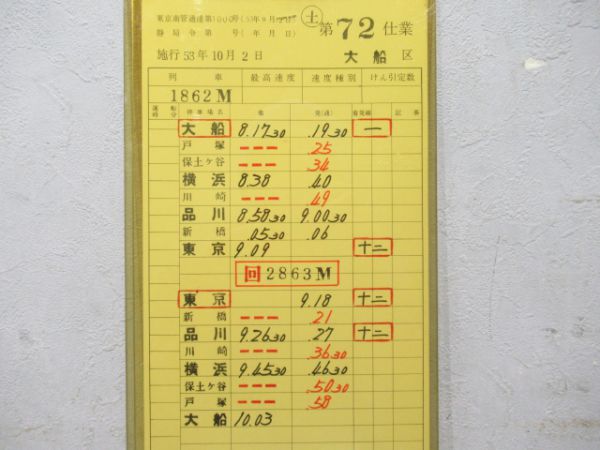 東京南管通達第1000号(53年9月 日) 土 第72仕業
静局令第 号( 年 月 日)
施行 53年10月2日 大船区
列車 最高速度 速度種別 けん引定数
1862M
停車場名 着 発(通) 着発線 記事
大船 8.17 30 .19 30 一
戸塚 --- .25
保土ケ谷 --- .34
横浜 8.38 .40
川崎 --- .49
品川 8.58 30 9.00 30
新橋 .05 30 .06
東京 9.09 十二
回2863M
東京 9.18 十二
新橋 --- .21
品川 9.26 30 .27 十二
川崎 --- .36 30
横浜 9.45 30 .46 30
保土ケ谷 --- .50 30
戸塚 --- .58
大船 10.03